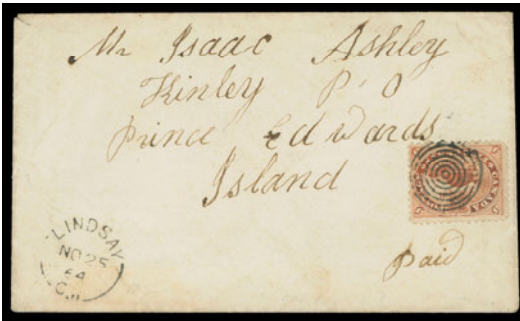 Mr Isaac Ashley
Kinley P. O
Prince Edwards
Island
Paid
LINDSAY
NO 25
64
C.W